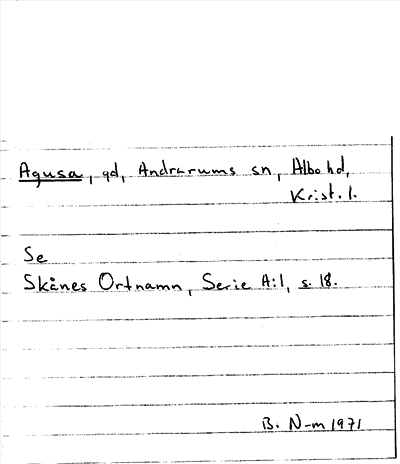 Agusa, gd, Andrarums sn, Albo hd,
Krist. l.
Se
Skånes Ortnamn, Serie A:1, s. 18.
B. N-m 1971